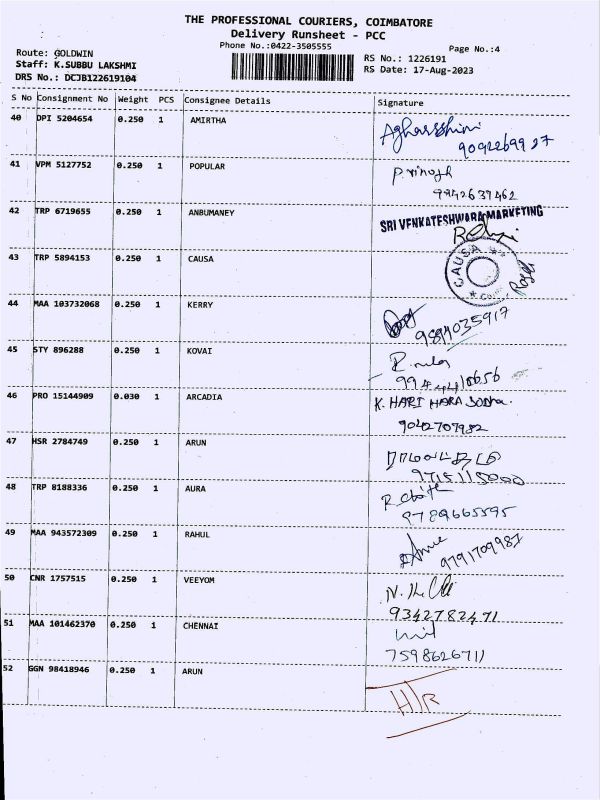 THE PROFESSIONAL COURIERS, COIMBATORE
Delivery Runsheet - PCC
Phone No.:0422-3505555
Page No.:4
Route: GOLDWIN
Staff: K.SUBBU LAKSHMI
DRS No.: DCJB122619104
RS No.: 1226191
RS Date: 17-Aug-2023
S No Consignment No Weight PCS Consignee Details Signature
40 DPI 5204654 0.250 1 AMIRTHA
9092269927
41 VPM 5127752 0.250 1 POPULAR P.vinoth
9942637462
42 TRP 6719655 0.250 1 ANBUMANEY SRI VENKATESHWARA MARKETING
43 TRP 5894153 0.250 1 CAUSA CAUSA
44 MAA 103732068 0.250 1 KERRY
9894035917
45 STY 896288 0.250 1 KOVAI
46 PRO 15144909 0.030 1 ARCADIA K. HARI HARA
9042707982
47 HSR 2784749 0.250 1 ARUN
9715115000
48 TRP 8188336 0.250 1 AURA
9789665595
49 MAA 943572309 0.250 1 RAHUL
9791709987
50 CNR 1757515 0.250 1 VEEYOM
9342782471
51 MAA 101462370 0.250 1 CHENNAI
7598626711
52 GGN 98418946 0.250 1 ARUN H/R